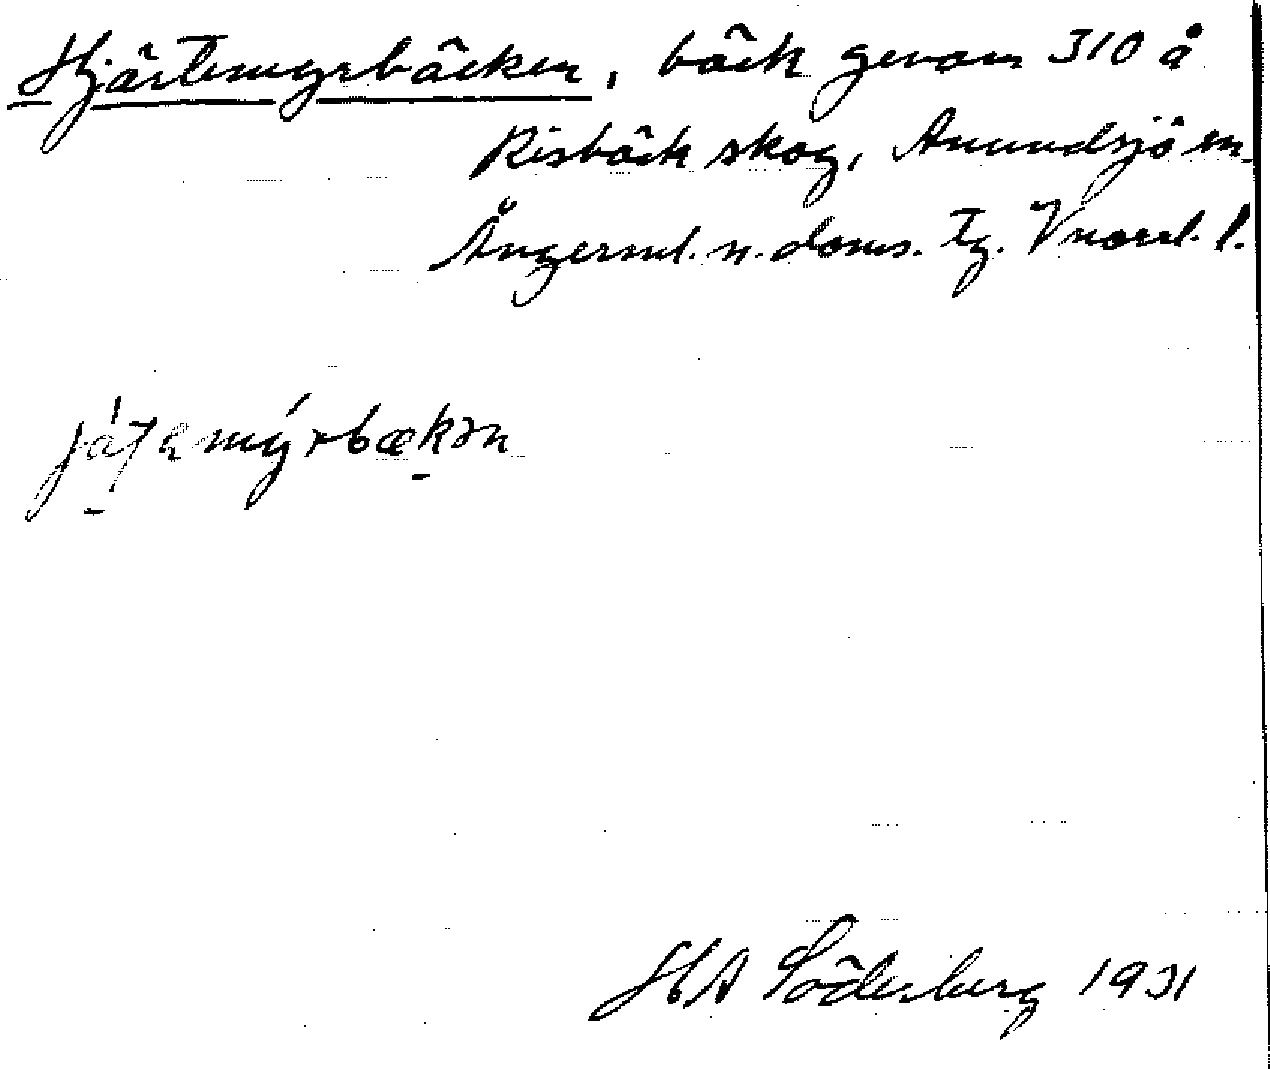 Hjärtemyrbäcken, bäck genom 310 å
Risbäck skog, Anundsjö sn
Ångerml. n. doms. tg. Vnorrl. l.
mýrbækən
HA Söderberg 1931